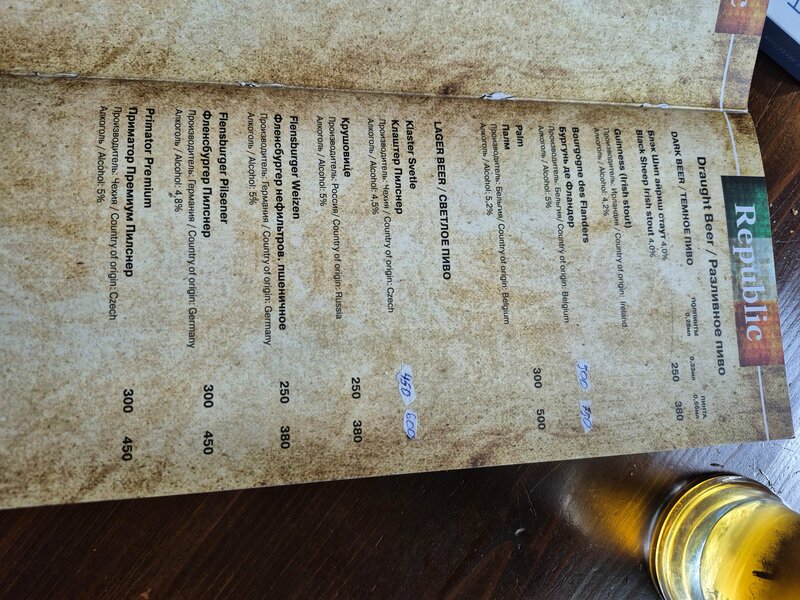 Republic
Draught Beer / Разливное пиво
DARK BEER / ТЕМНОЕ ПИВО
полпинты 0,28мл 0,33мл пинта 0,56мл
Блэк Шип айриш стаут 4,0% 250 380
Black Sheep Irish stout 4,0%
Guinness (Irish stout)
Производитель: Ирландия / Country of origin: Ireland
Алкоголь / Alcohol: 4,2%
Bourgogne des Flanders 500 750
Бургунь де Фландер
Производитель: Бельгия / Country of origin: Belgium
Алкоголь / Alcohol: 5%
Palm 300 500
Палм
Производитель: Бельгия / Country of origin: Belgium
Алкоголь / Alcohol: 5,2%
LAGER BEER / СВЕТЛОЕ ПИВО
Klaster Svetle 450 600
Клаштер Пилснер
Производитель: Чехия / Country of origin: Czech
Алкоголь / Alcohol: 4,5%
Крушовице 250 380
Производитель: Россия / Country of origin: Russia
Алкоголь / Alcohol: 5%
Flensburger Weizen 250 380
Фленсбургер нефильтров. пшеничное
Производитель: Германия / Country of origin: Germany
Алкоголь / Alcohol: 5%
Flensburger Pilsener 300 450
Фленсбургер Пилснер
Производитель: Германия / Country of origin: Germany
Алкоголь / Alcohol: 4,8%
Primator Premium 300 450
Приматор Премиум Пилснер
Производитель: Чехия / Country of origin: Czech
Алкоголь / Alcohol: 5%